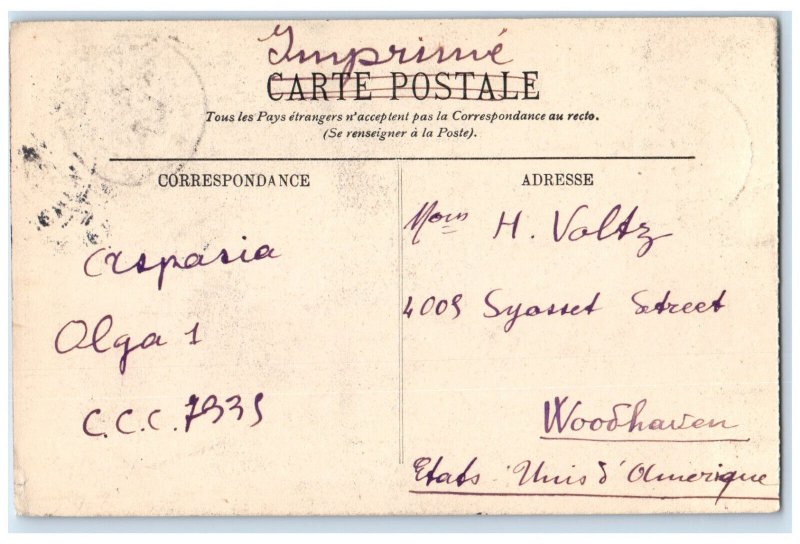 Imprimé
CARTE POSTALE
Tous les Pays étrangers n'acceptent pas la Correspondance au recto.
(Se renseigner à la Poste).
CORRESPONDANCE
Aspasia
Olga 1
C.C.C. 7335
ADRESSE
H. Voltz
4005 Syosset Street
Woodhaven
Etats-Unis d'Amerique